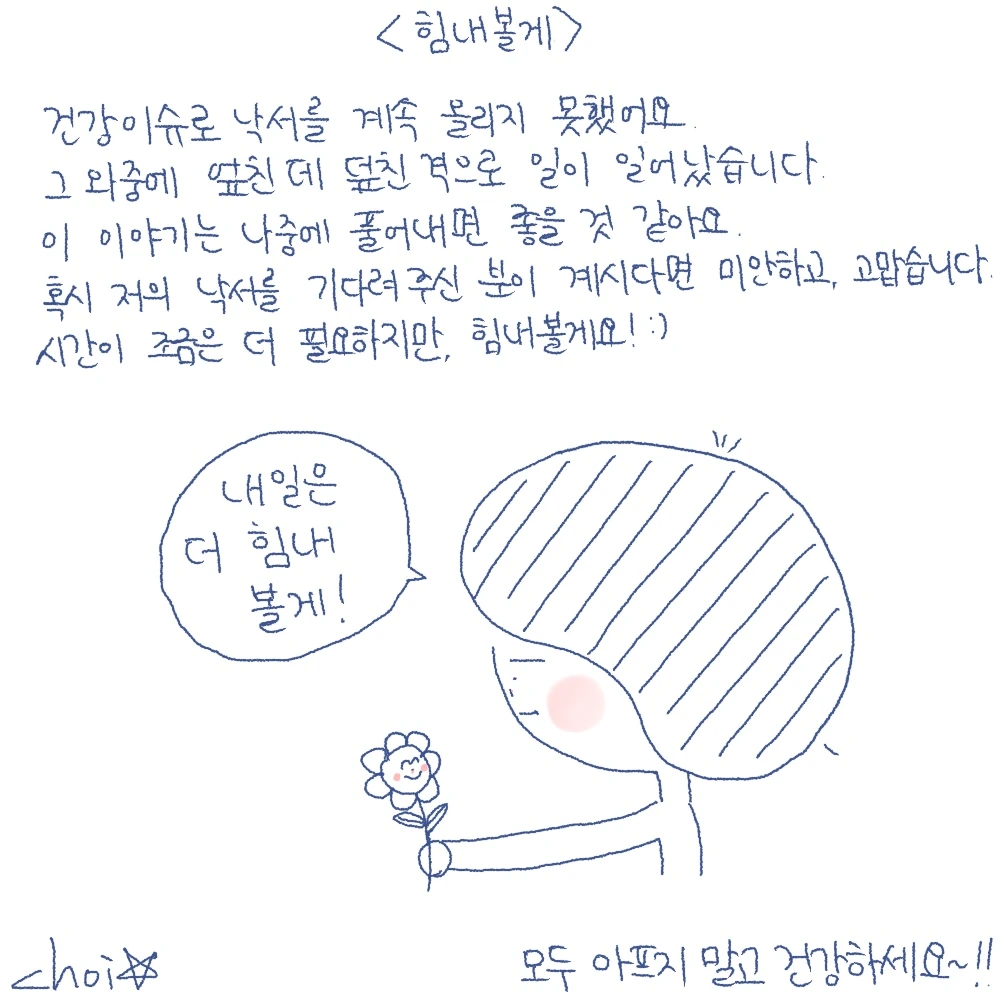 <힘내볼게>
건강이슈로 낙서를 계속 올리지 못했어요.
그 와중에 엎친 데 덮친 격으로 일이 일어났습니다.
이 이야기는 나중에 풀어내면 좋을 것 같아요.
혹시 저의 낙서를 기다려주신 분이 계시다면 미안하고, 고맙습니다.
시간이 조금은 더 필요하지만, 힘내볼게요! :)
내일은
더 힘내
볼게!
choi☆
모두 아프지 말고 건강하세요~!!